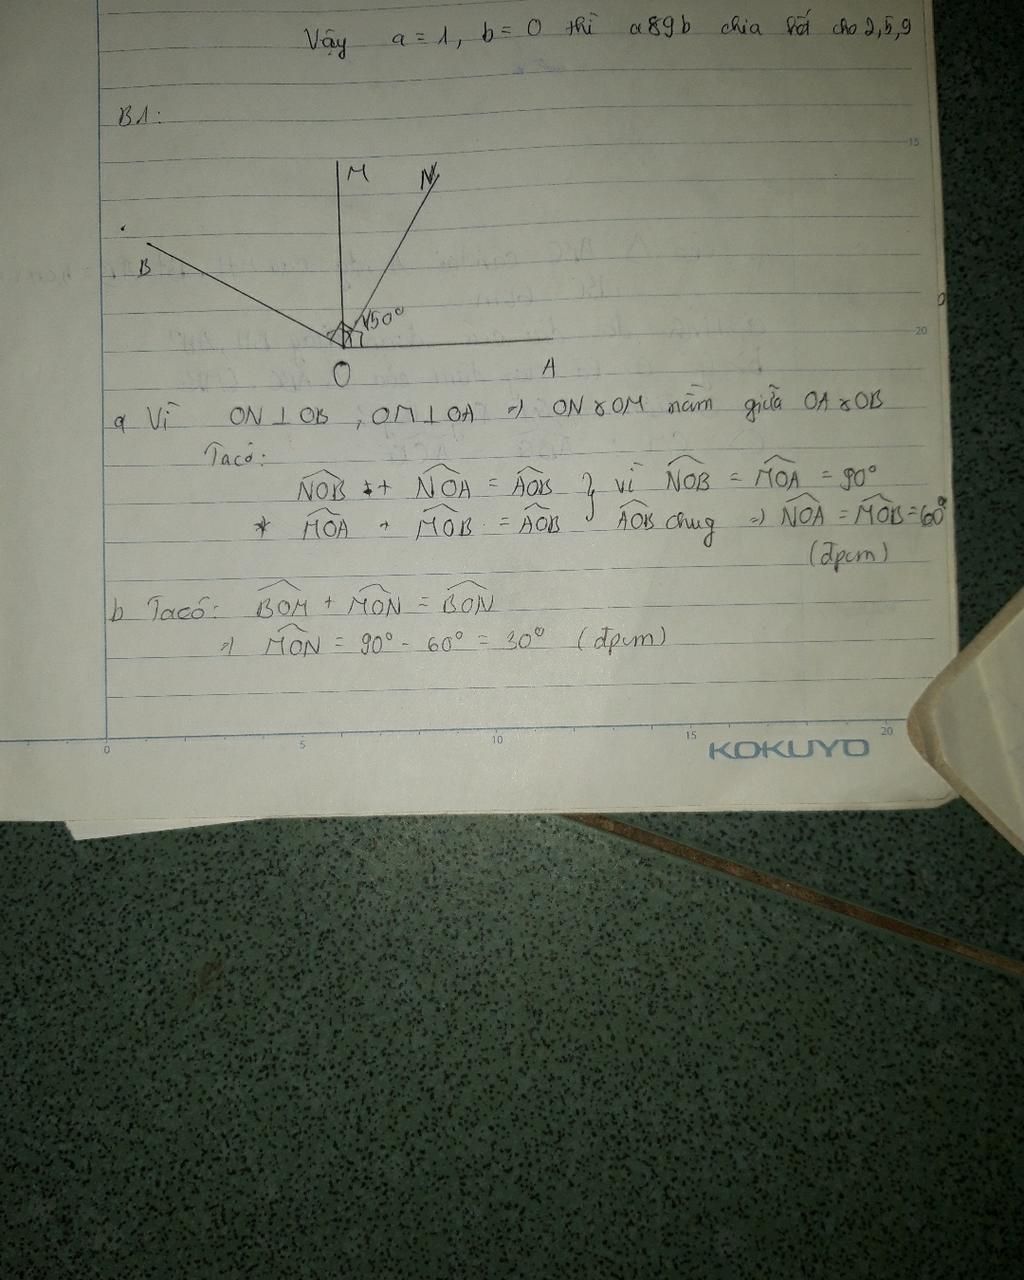 Vậy a = 1, b = 0 thì a89b chia hết cho 2,5,9
B1:
M
N
B
150°
O
A
a Vì ON ⊥ OB , OM ⊥ OA => ON & OM nằm giữa OA & OB
Ta có:
NOB + NOA = AOB } vì NOB = MOA = 90°
* MOA + MOB = AOB AOB chug => NOA = MOB = 60°
(đpcm)
b Ta có: BOM + MON = BON
=> MON = 90° - 60° = 30° (đpcm)
15
20
0 5 10 15 20
KOKUYO